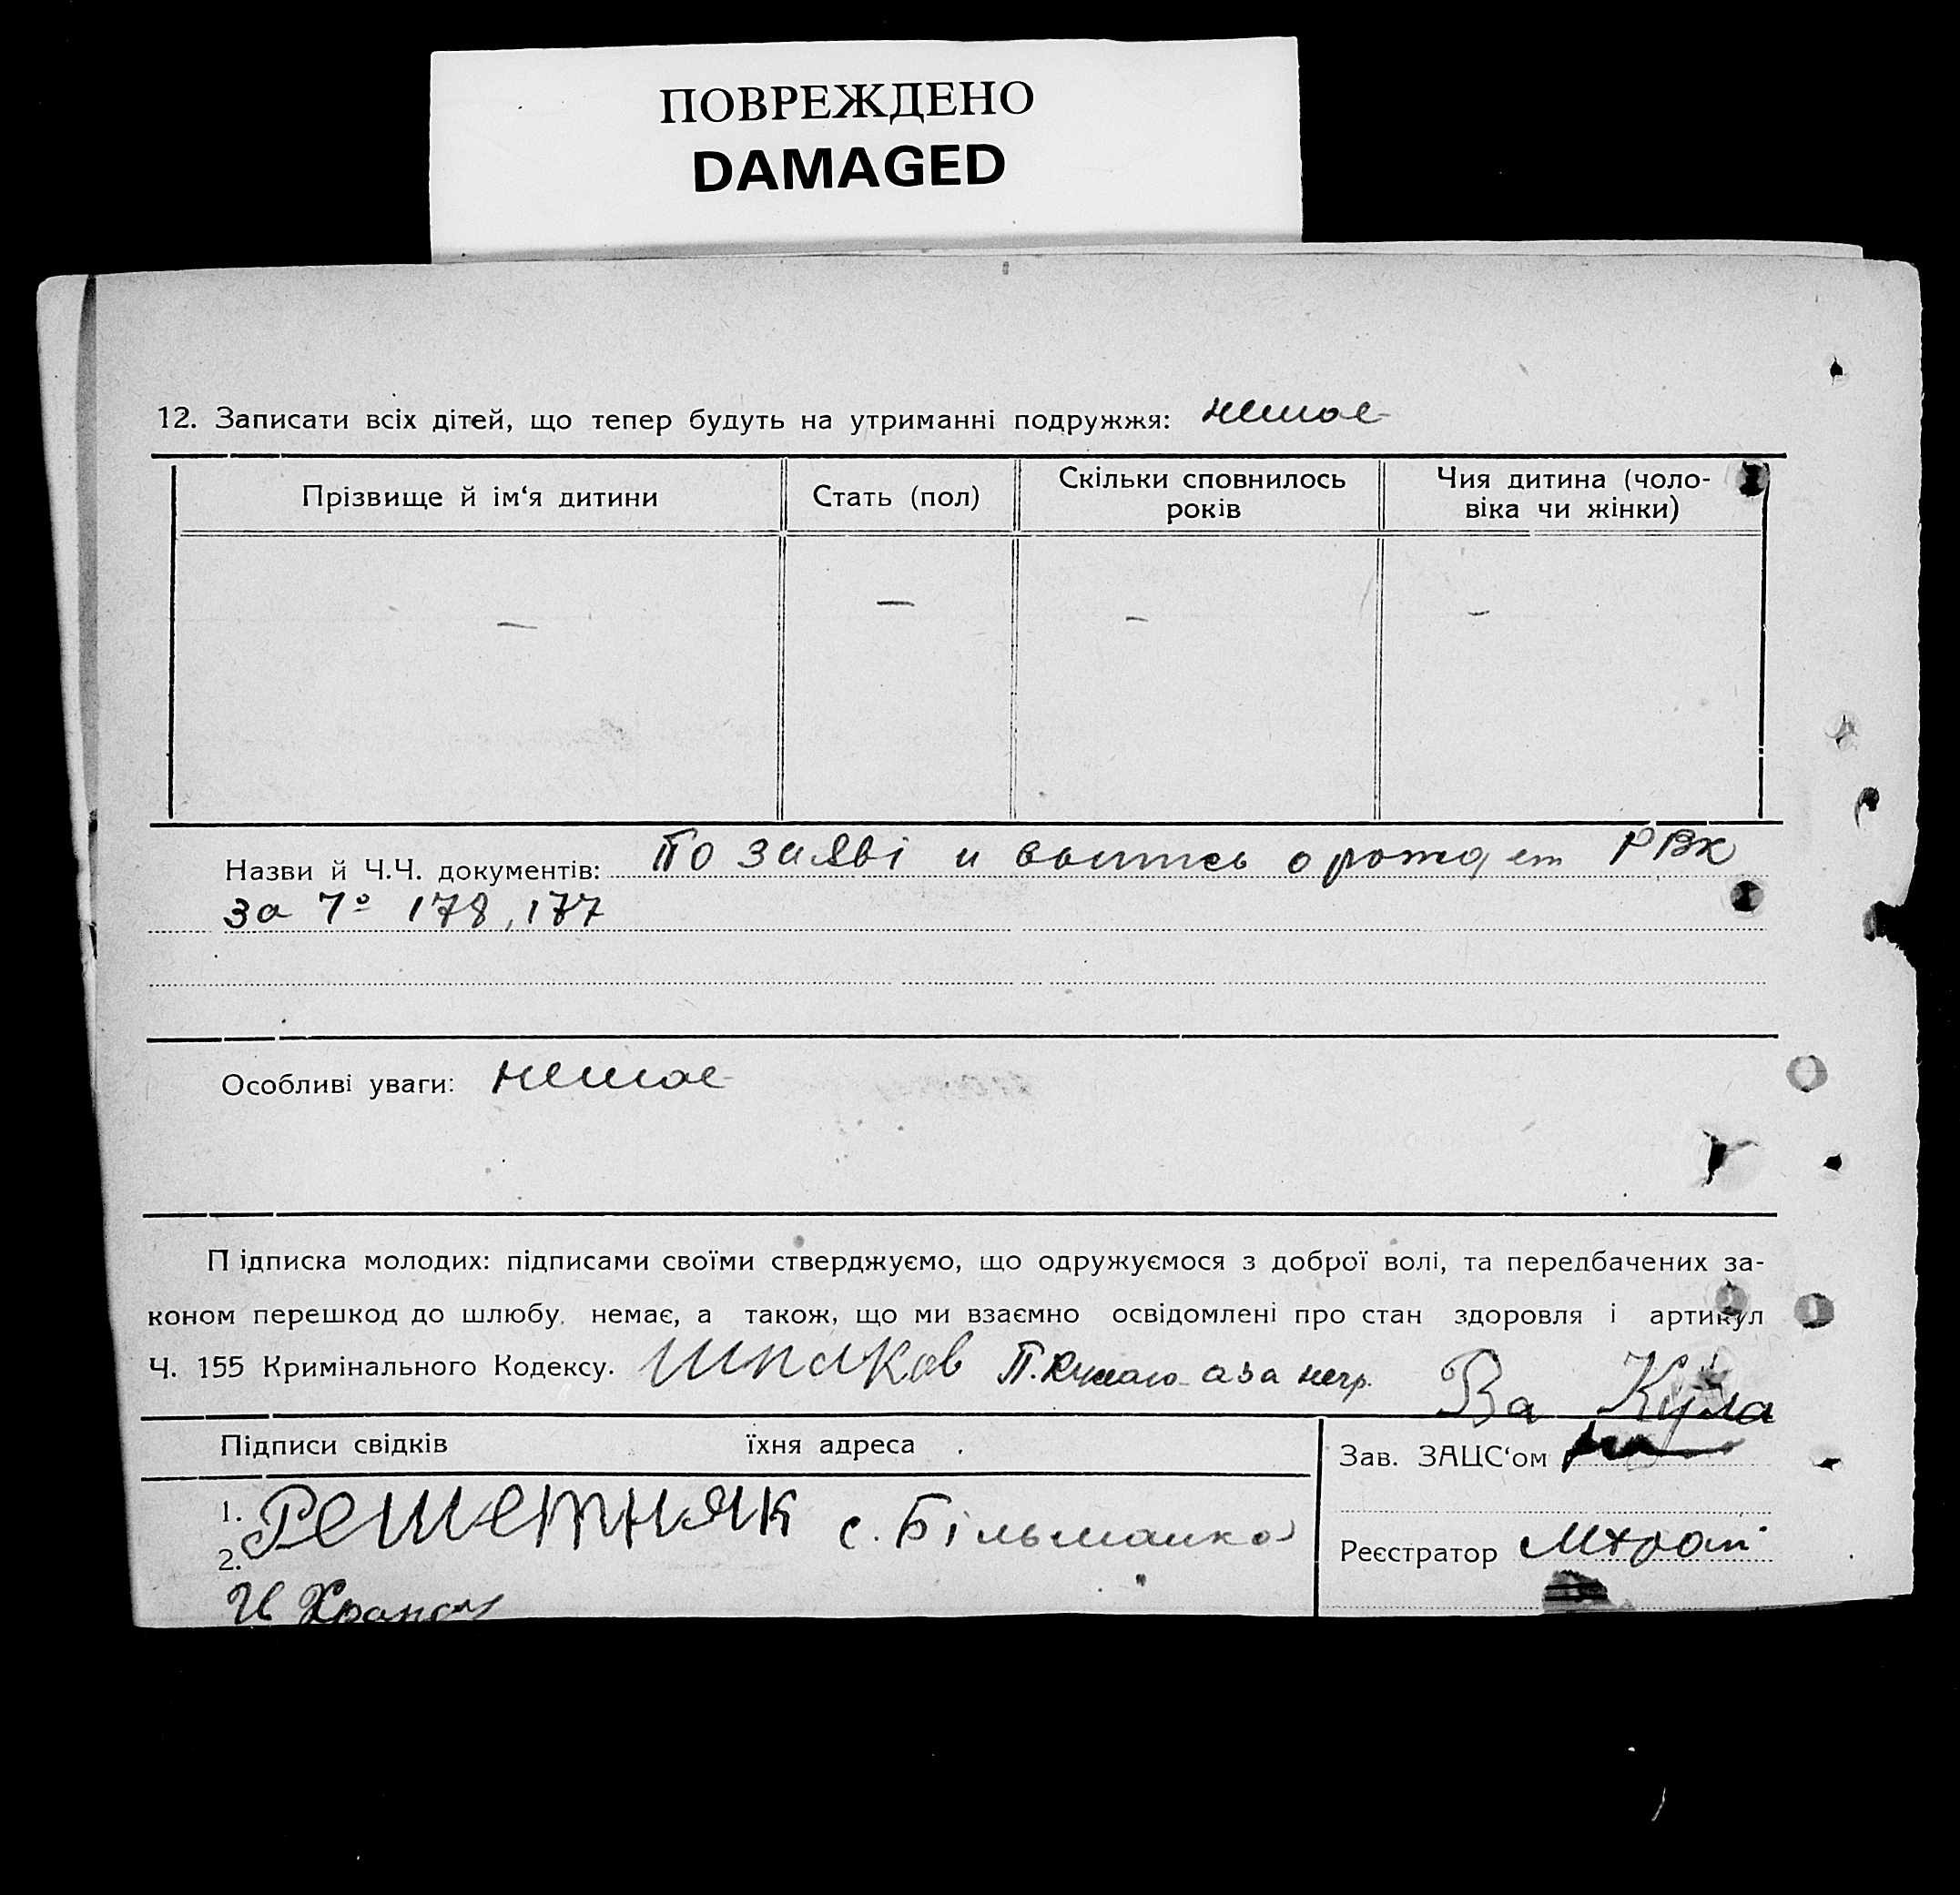 ПОВРЕЖДЕНО
DAMAGED
12. Записати всіх дітей, що тепер будуть на утриманні подружжя: немає
Прізвище й ім‘я дитини
Стать (пол)
Скільки сповнилось
років
Чия дитина (чоло-
віка чи жінки)
— — — —
Назви й Ч.Ч. документів: По заяві и о РВК
за № 178, 177
Особливі уваги: немає
Підписка молодих: підписами своїми стверджуємо, що одружуємося з доброї волі, та передбачених за-
коном перешкод до шлюбу немає, а також, що ми взаємно освідомлені про стан здоровля і артикул
Ч. 155 Кримінального Кодексу. Шпаков П. а за негр.
Підписи свідків їхня адреса
Зав. ЗАЦС‘ом
1. Решетняк с. Більманка
2.
Реєстратор